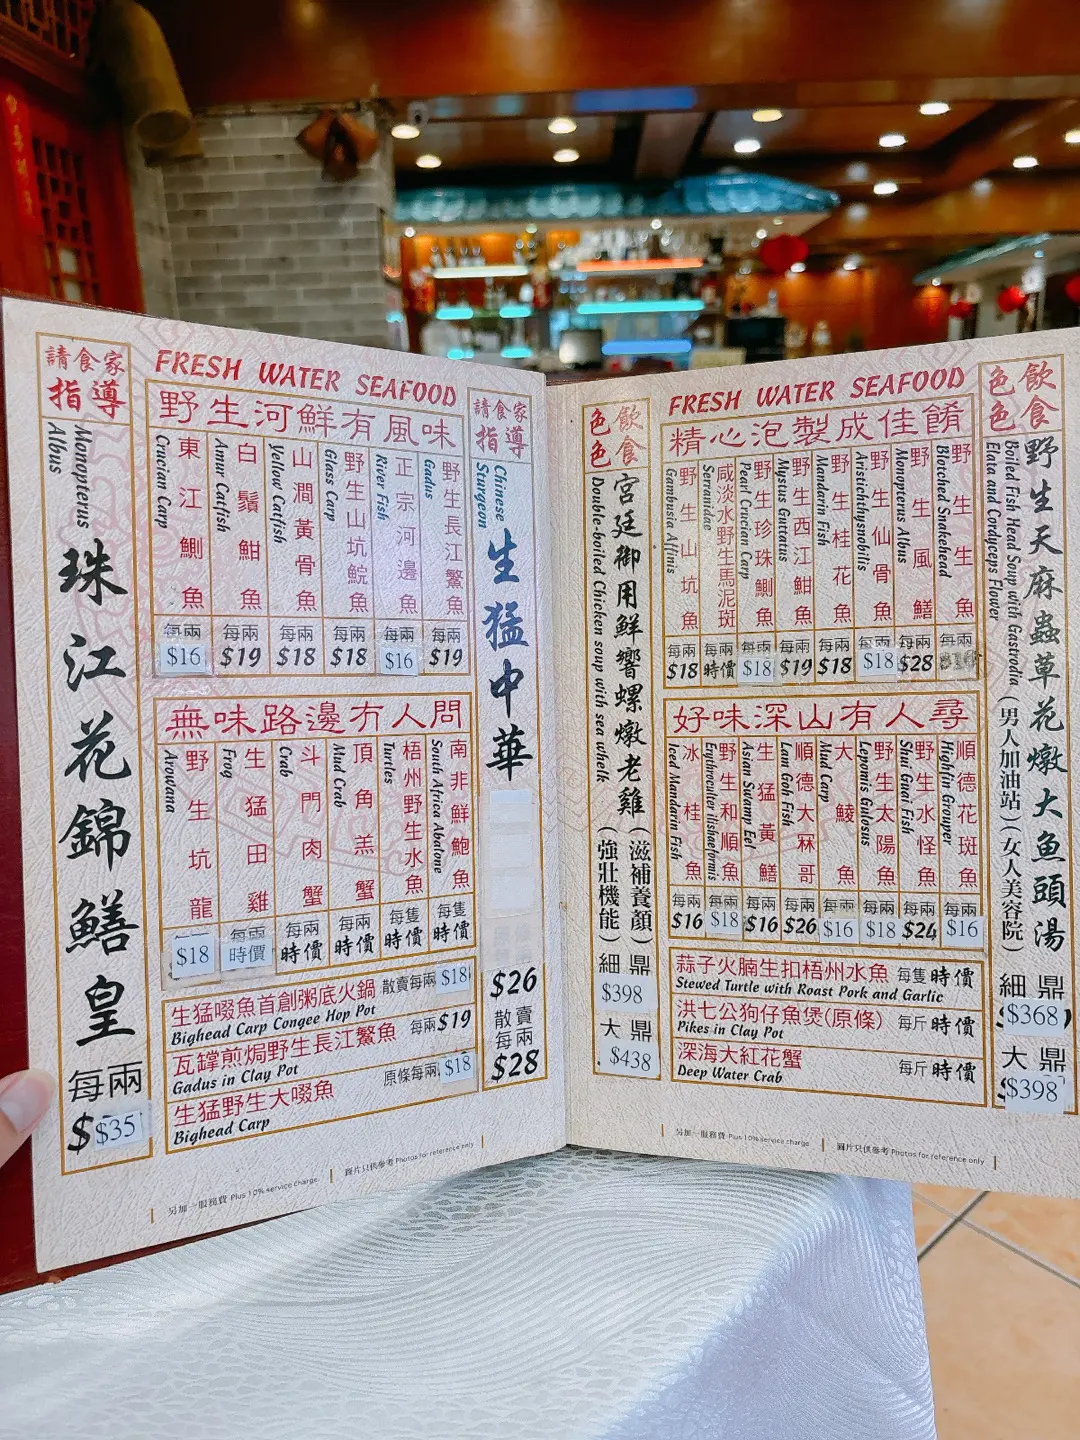 請食家
指導
Monopterus
Albus
珠江花錦鱔皇
每兩
$35
FRESH WATER SEAFOOD
野生河鮮有風味
東江鰂魚
Crucian Carp
每兩
$16
白鬚鮒魚
Amur Catfish
每兩
$19
山澗黃骨魚
Yellow Catfish
每兩
$18
野生山坑鯇魚
Glass Carp
每兩
$18
正宗河邊魚
River Fish
每兩
$16
野生長江鱉魚
Gadus
每兩
$19
無味路邊冇人問
野生坑龍
Arowana
$18
生猛田雞
Frog
每兩
時價
斗門肉蟹
Crab
每兩
時價
頂角羔蟹
Mud Crab
每兩
時價
梧州野生水魚
Turtles
每隻
時價
南非鮮鮑魚
South Africa Abalone
每隻
時價
生猛啜魚首創粥底火鍋 散賣每兩 $18
Bighead Carp Congee Hop Pot
瓦罉煎焗野生長江鱉魚 每兩 $19
Gadus in Clay Pot
生猛野生大啜魚 原條每兩 $18
Bighead Carp
請食家
指導
Chinese
Sturgeon
生猛中華
$26
散賣
每兩
$28
另加一服務費 Plus 10% service charge
圖片只供參考 Photos for reference only
飲食
色色
宮廷御用鮮響螺燉老雞
(滋補養顏)
(強壯機能)
Double-boiled Chicken soup with sea whelk
細鼎
$398
大鼎
$438
FRESH WATER SEAFOOD
精心泡製成佳餚
野生山坑魚
Gambusia Affinis
每兩
$18
咸淡水野生馬泥斑
Serranidae
每兩
時價
野生珍珠鰂魚
Pearl Crucian Carp
每兩
$18
野生西江鮒魚
Mystus Guttatus
每兩
$19
野生桂花魚
Mandarin Fish
每兩
$18
野生仙骨魚
Aristichthysnobilis
每兩
$18
野生風鱔
Monopterus Albus
每兩
$28
野生生魚
Blotched Snakehead
每兩
好味深山有人尋
冰桂魚
Iced Mandarin Fish
每兩
$16
野生和順魚
Erythroculter ilishaeformis
每兩
$18
生猛黃鱔
Asian Swamp Eel
每兩
$16
順德大冧哥
Lam Goh Fish
每兩
$26
大鯪魚
Mud Carp
每兩
$16
野生太陽魚
Lepomis Gulosus
每兩
$18
野生水怪魚
Shui Guai Fish
每兩
$24
順德花斑魚
Highfin Grouper
每兩
$16
蒜子火腩生扣梧州水魚 每隻 時價
Stewed Turtle with Roast Pork and Garlic
洪七公狗仔魚煲(原條) 每斤 時價
Pikes in Clay Pot
深海大紅花蟹 每斤 時價
Deep Water Crab
飲食
色色
野生天麻蟲草花燉大魚頭湯
(男人加油站)(女人美容院)
Boiled Fish Head Soup with Gastrodia
Elata and Cordyceps Flower
細鼎
$368
大鼎
$398
另加一服務費 Plus 10% service charge
圖片只供參考 Photos for reference only